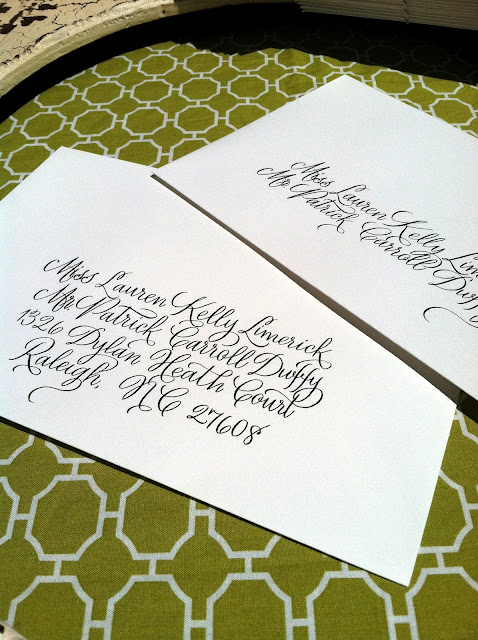 Miss Lauren Kelly Limerick
Mr. Patrick Carroll Duffy
1326 Dylan Heath Court
Raleigh, NC 27608
Miss Lauren Kelly Lime
Mr. Patrick Carroll Duffy